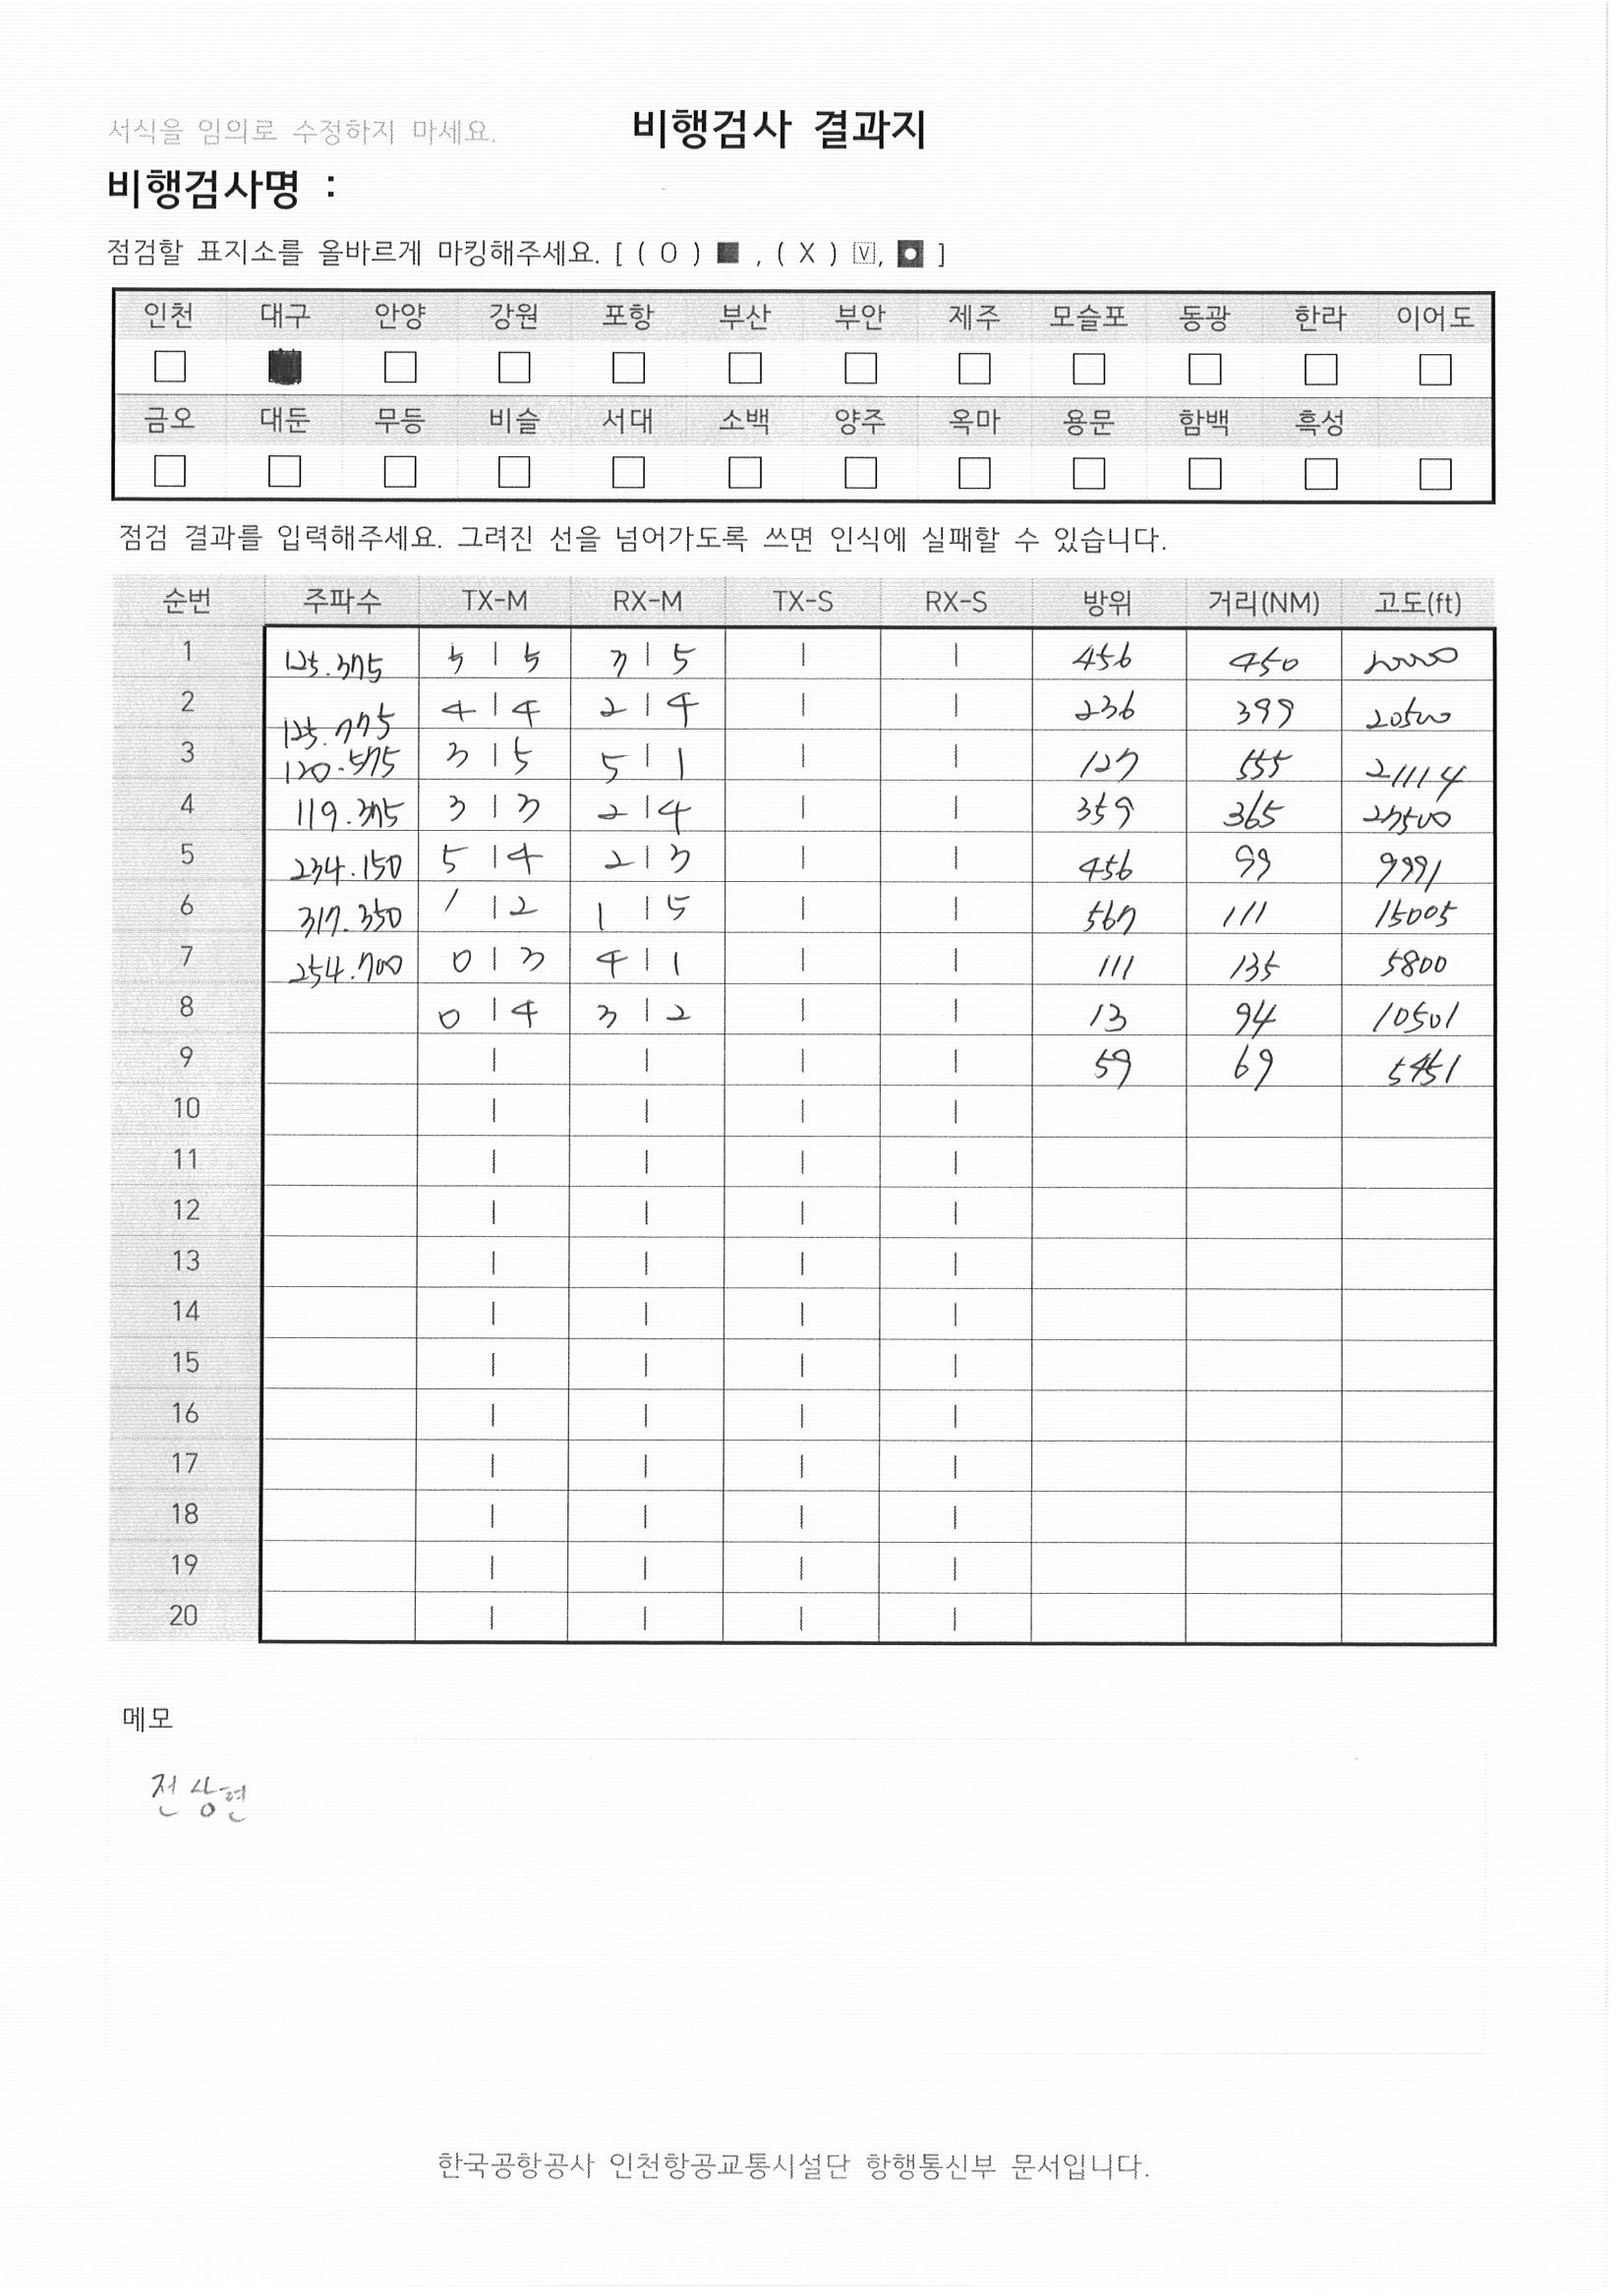 서식을 임의로 수정하지 마세요. 비행검사 결과지
비행검사명 :
점검할 표지소를 올바르게 마킹해주세요. [ ( O ) ■ , ( X ) ☑, ◘ ]
인천 대구 안양 강원 포항 부산 부안 제주 모슬포 동광 한라 이어도
□ ■ □ □ □ □ □ □ □ □ □ □
금오 대둔 무등 비슬 서대 소백 양주 옥마 용문 함백 흑성
□ □ □ □ □ □ □ □ □ □ □ □
점검 결과를 입력해주세요. 그려진 선을 넘어가도록 쓰면 인식에 실패할 수 있습니다.
순번 주파수 TX-M RX-M TX-S RX-S 방위 거리(NM) 고도(ft)
1 125.375 5 | 5 3 | 5 | | 456 450 20000
2 125.775 4 | 4 2 | 4 | | 236 399 20500
3 120.575 3 | 5 5 | 1 | | 127 555 21114
4 119.375 3 | 3 2 | 4 | | 359 365 27500
5 234.150 5 | 4 2 | 3 | | 456 99 9991
6 317.350 1 | 2 1 | 5 | | 567 111 15005
7 254.700 0 | 3 4 | 1 | | 111 135 5800
8 0 | 4 3 | 2 | | 13 94 10501
9 | | | | 59 69 5451
10 | | | |
11 | | | |
12 | | | |
13 | | | |
14 | | | |
15 | | | |
16 | | | |
17 | | | |
18 | | | |
19 | | | |
20 | | | |
메모
전상현
한국공항공사 인천항공교통시설단 항행통신부 문서입니다.